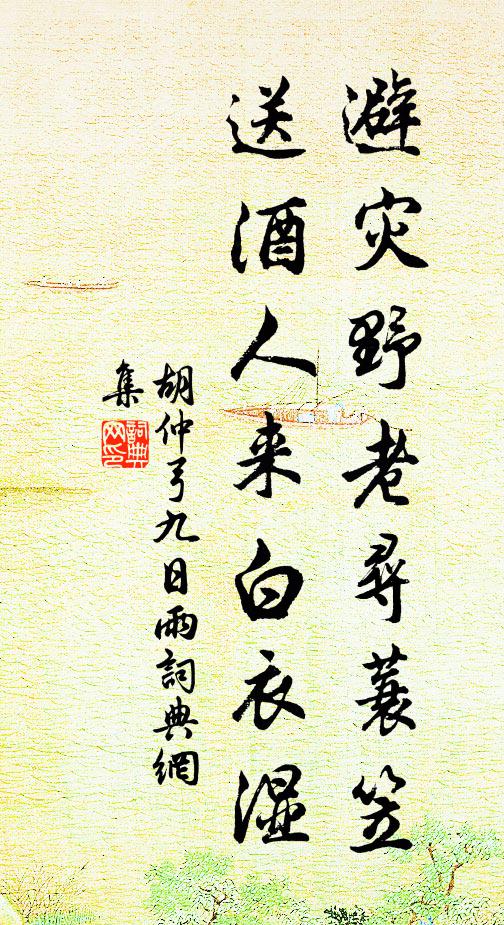 避灾野老尋蓑笠
送酒人来白衣湿
胡仲弓九日雨詞典網
集
詞典
网印